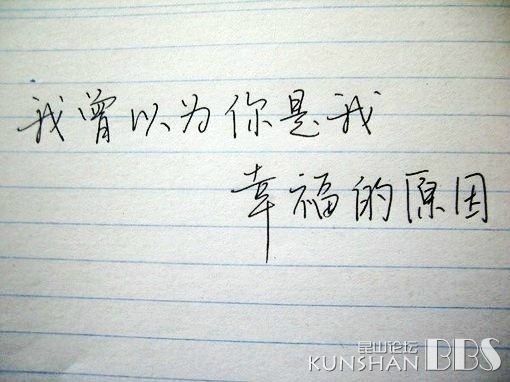 我曾以为你是我
幸福的原因
昆山论坛
KUNSHAN BBS